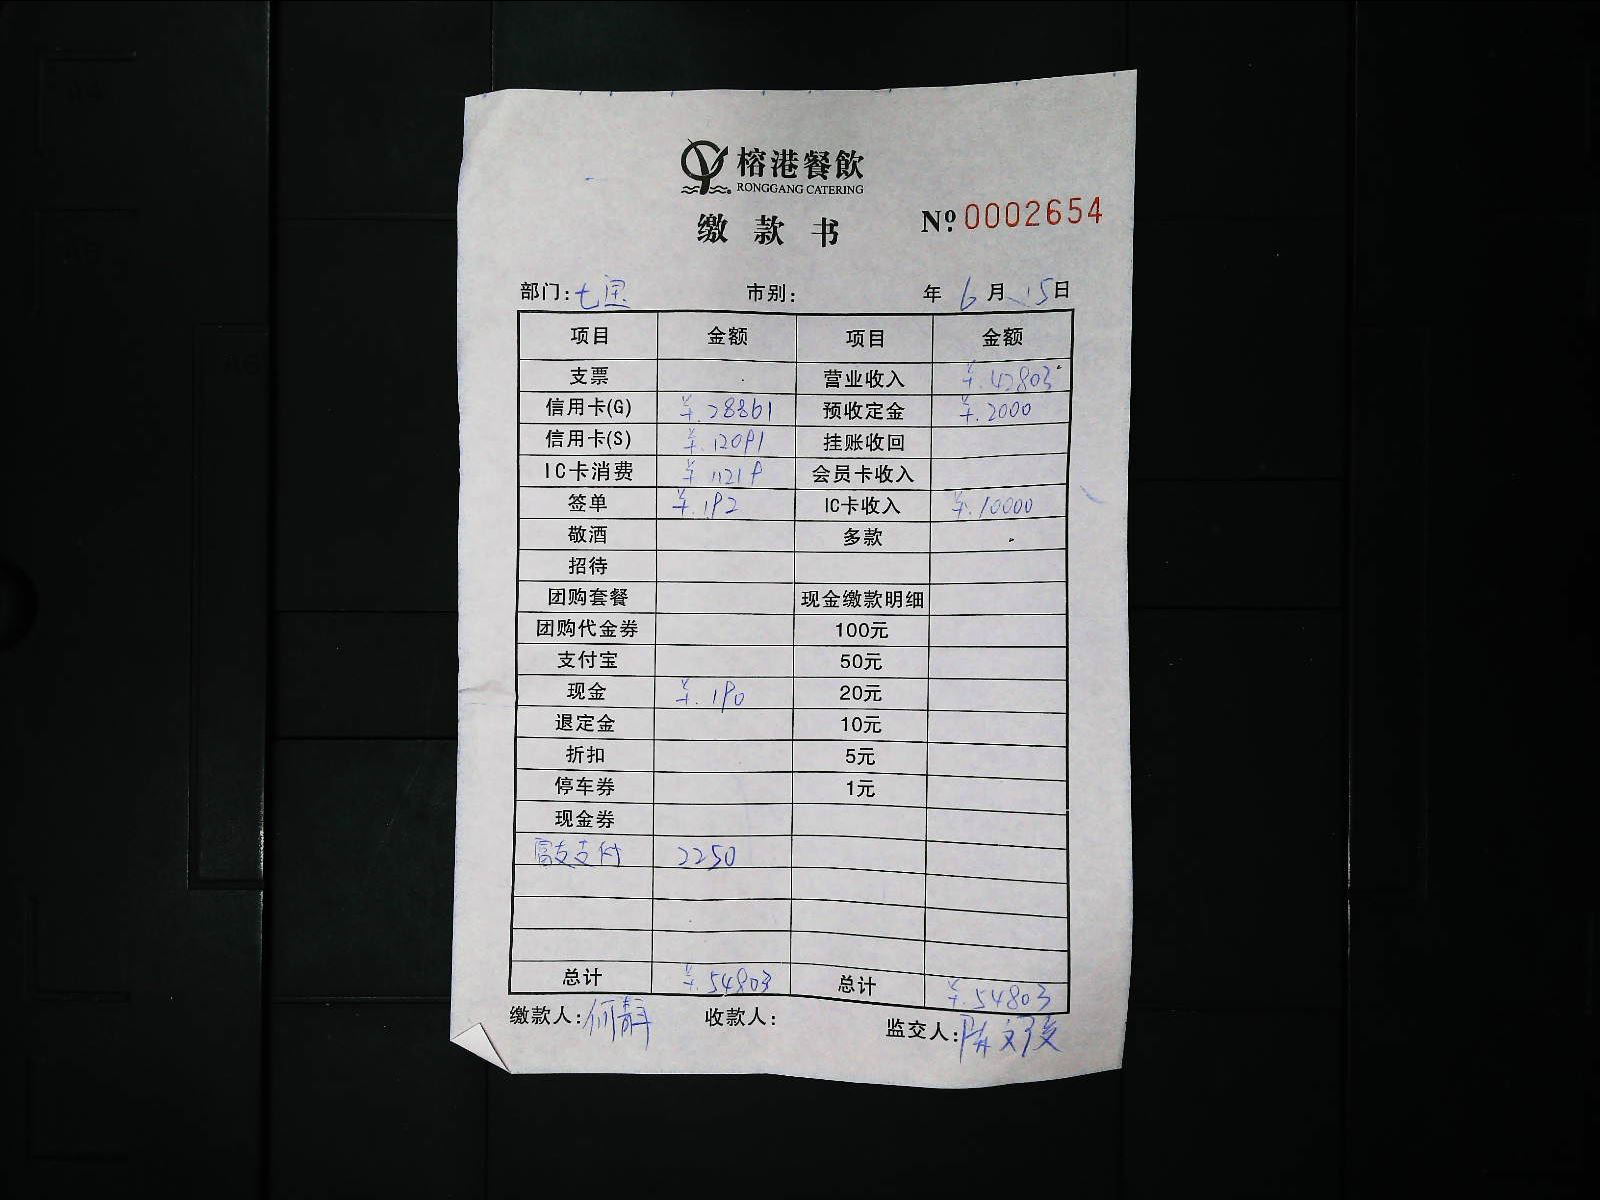 榕港餐飲
RONGGANG CATERING
缴款书
Nº 0002654
部门: 七 市别: 年 6月 15日
项目 金额 项目 金额
支票 营业收入 ¥.42803
信用卡(G) ¥.28861 预收定金 ¥.2000
信用卡(S) ¥.12091 挂账收回
IC卡消费 ¥11219 会员卡收入
签单 ¥.192 IC卡收入 ¥.10000
敬酒 多款
招待
团购套餐 现金缴款明细
团购代金券 100元
支付宝 50元
现金 ¥.190 20元
退定金 10元
折扣 5元
停车券 1元
现金券
富友支付 2250
总计 ¥.54803 总计 ¥.54803
缴款人: 何静 收款人: 监交人: 陈文